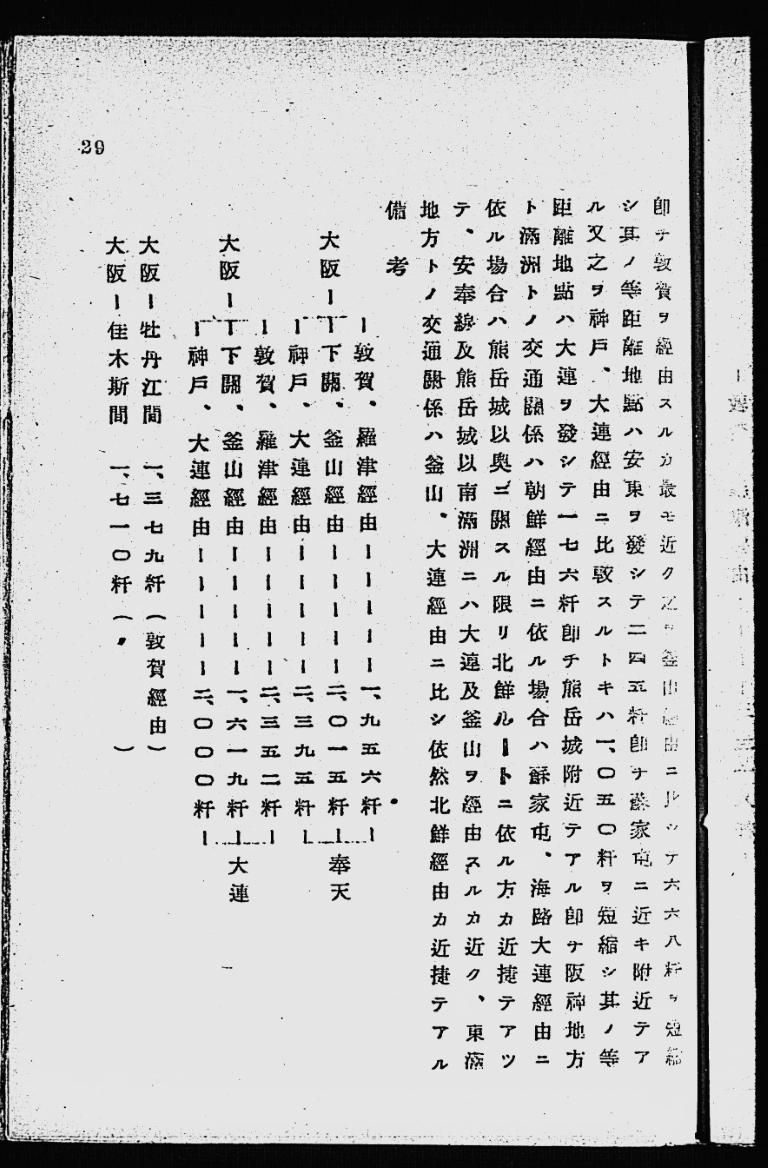 29
即チ敦賀ヲ經由スルカ最モ近ク之ヲ釜山經由ニ比シテ六六八粁ヲ短縮
シ其ノ等距離地點ハ安東ヲ發シテ二四五粁卽チ蘇家屯ニ近キ附近テア
ル又之ヲ神戶、大連經由ニ比較スルトキハ一、〇五〇粁ヲ短縮シ其ノ等
距離地點ハ大連ヲ發シテ一七六粁卽チ熊岳城附近テアル卽チ阪神地方
ト滿洲トノ交通關係ハ朝鮮經由ニ依ル場合ハ蘇家屯、海路大連經由ニ
依ル場合ハ熊岳城以奧ニ關スル限リ北鮮ルートニ依ル方カ近捷テアツ
テ、安奉線及熊岳城以南滿洲ニハ大連及釜山ヲ經由スルカ近ク、東滿
地方トノ交通關係ハ釜山、大連經由ニ比シ依然北鮮經由カ近捷テアル
備考
大阪ー
ー敦賀、羅津經由ーーーーー一、九五六粁ー
ー下關、釜山經由ーーーーー二、〇一五粁ー
ー神戶、大連經由ーーーーー二、三九五粁ー
奉天
大阪ー
ー敦賀、羅津經由ーーーーー二、三五二粁ー
ー下關、釜山經由ーーーーー一、六一九粁ー
ー神戶、大連經由ーーーーー二、〇〇〇粁ー
大連
大阪ー牡丹江間 一、三七九粁(敦賀經由)
大阪ー佳木斯間 一、七一〇粁(〃)